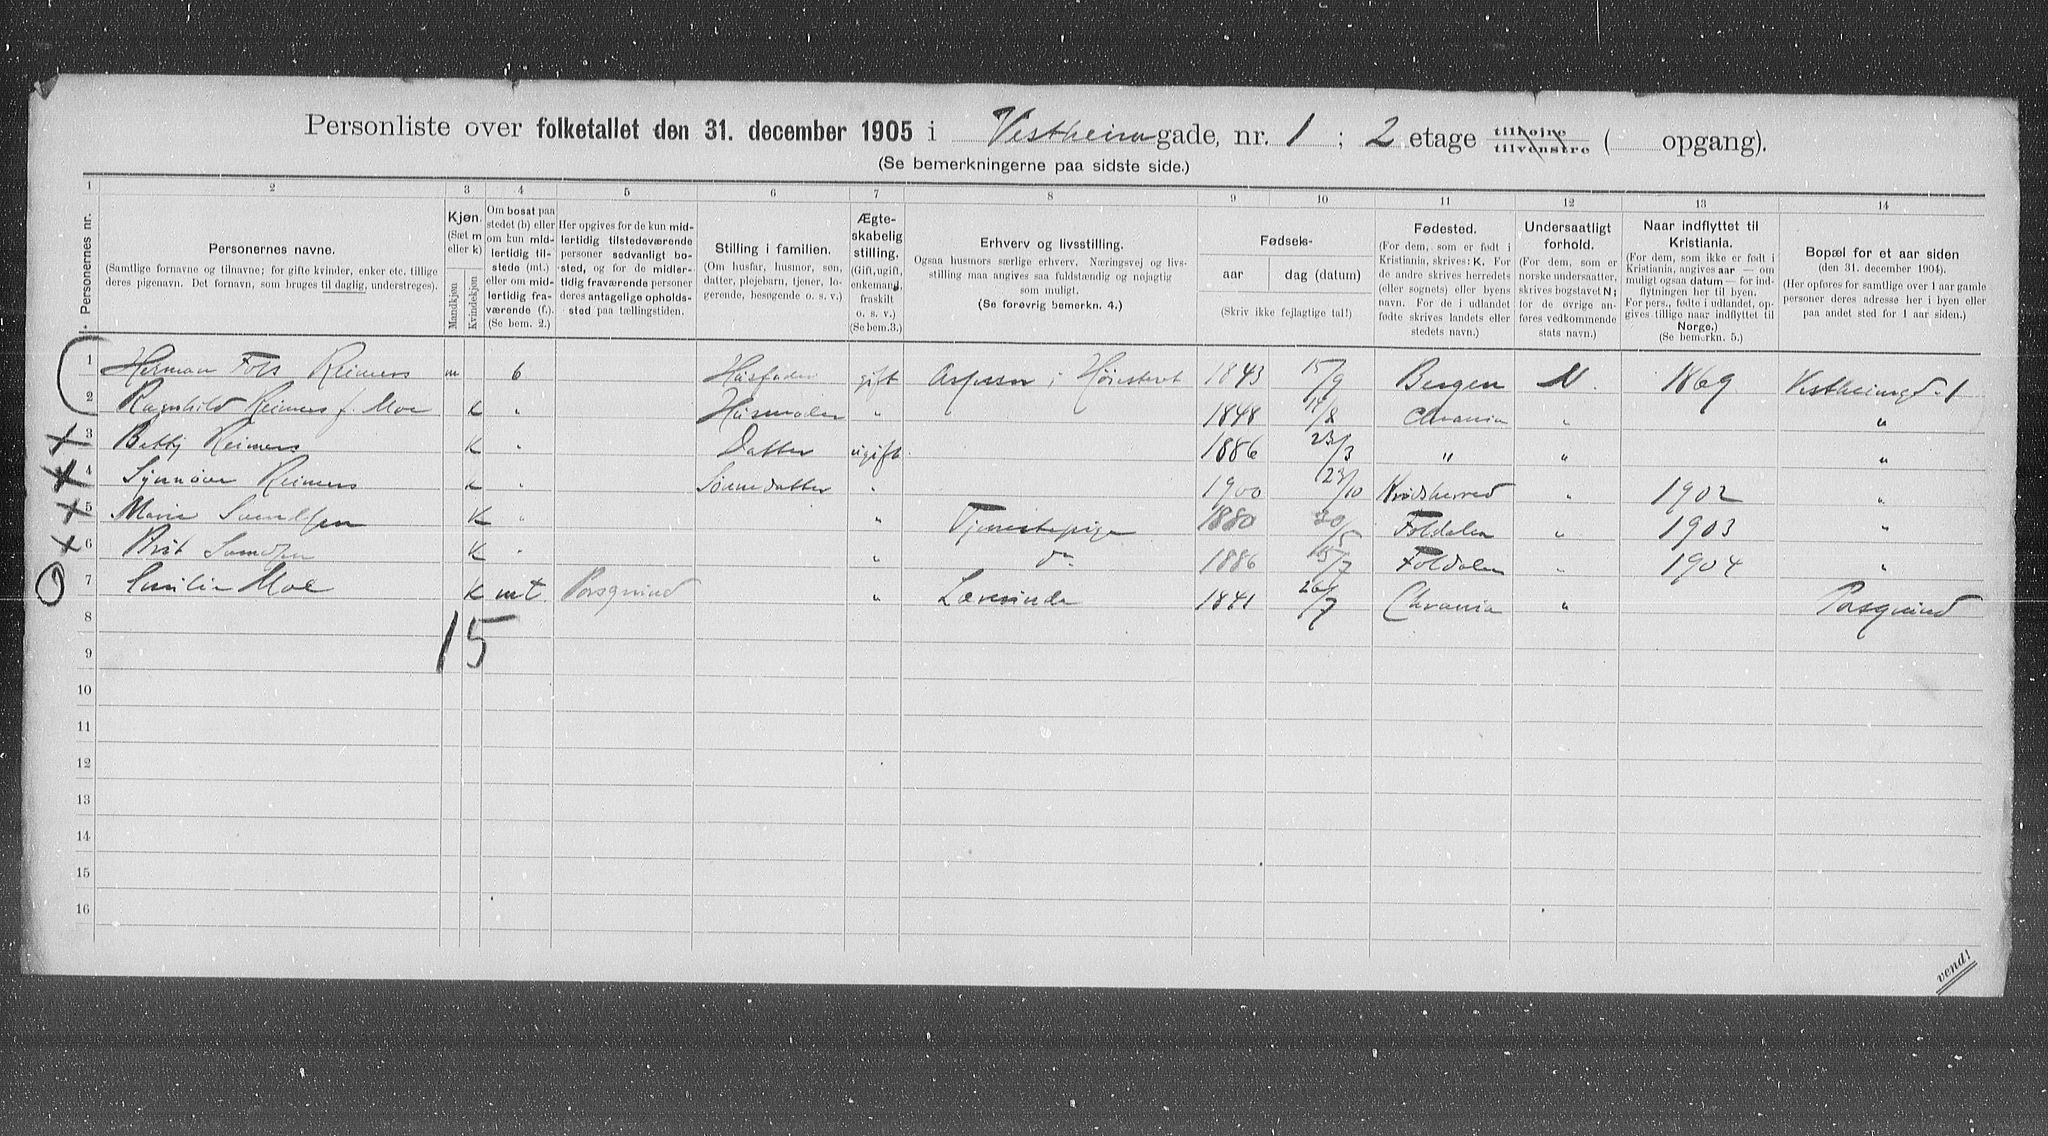 Personliste over folketallet den 31. december 1905 i Vestheim gade, nr. 1 ; 2 etage tilhøire tilvenstre ( opgang).
(Se bemerkningerne paa sidste side.)
1 2 3 4 5 6 7 8 9 10 11 12 13 14
Personernes nr.
Personernes navne.
(Samtlige fornavne og tilnavne; for gifte kvinder, enker etc. tillige
deres pigenavn. Det fornavn, som bruges til daglig, understreges).
Kjøn.
(Sæt m
eller k)
Mandkjøn
Kvindekjøn
Om bosat paa
stedet (b) eller
om kun mid-
lertidig til-
stede (mt.)
eller om mid-
lertidig fra-
værende (f.)
(Se bem. 2.)
Her opgives for de kun mid-
lertidig tilstedeværende
personer sedvanlig bo-
sted, og for de midler-
tidig fraværende personer
deres antagelige opholds-
sted paa tællingstiden.
Stilling i familien.
(Om husfar, husmor, søn,
datter, plejebarn, tjener, lo-
gerende, besøgende o. s. v.)
Ægte-
skabelig
stilling.
(Gift, ugift,
enkemand,
fraskilt
o. s. v.)
(Se bem. 3.)
Erhverv og livsstilling.
Ogsaa husmors særlige erhverv. Næringsvej og livs-
stilling maa angives saa fuldstændig og nøjagtig
som muligt.
(Se forøvrig bemerkn. 4.)
Fødsels-
aar dag (datum)
(Skriv ikke fejlagtige tal!)
Fødested.
(For dem, som er født i
Kristiania, skrives: K. For
de andre skrives herredets
(eller sognets) eller byens
navn. For de i udlandet
fødte skrives landets eller
stedets navn.)
Undersaatligt
forhold.
(For dem, som er
norske undersaatter,
skrives bogstavet N;
for de øvrige an-
føres vedkommende
stats navn.)
Naar indflyttet til
Kristiania.
(For dem, som ikke er født i
Kristiania, angives aar — om
muligt ogsaa datum — for ind-
flytningen her til byen.
For pers., fødte i udlandet, op-
gives tillige naar indflyttet til
Norge.)
(Se bemerkn. 5.)
Bopæl for et aar siden
(den 31. december 1904).
(Her opføres for samtlige over 1 aar gamle
personer deres adresse her i byen eller
paa andet sted for 1 aar siden.)
1 Herman Foss Reimers m b Husfader gift Assessor i Høiesteret 1843 15/9 Bergen N. 1869 Vestheimgd. 1
2 Ragnhild Reimers f. Moe K " Husmoder " 1848 14/8 Chrania " "
3 Betty Reimers K " Datter ugift 1886 23/3 " " "
4 Synnøve Reimers K " Sønnedatter " 1900 23/10 Krødsherred " 1902 "
5 Marie K " " Tjenestepige 1880 20/5 Foldalen " 1903 "
6 Brit K " " do 1886 15/7 Foldalen " 1904 "
7 Emilie Moe K mt. Porsgrund " Lærerinde 1841 26/7 Chrania " Porsgrund
8
15
9
10
11
12
13
14
15
16
vend!